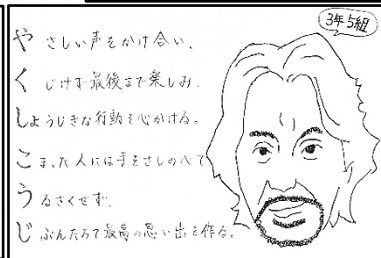 3年5組
やさしい声をかけ合い、
くじけず最後まで楽しみ、
しょうじきな行動を心がける。
こまった人には手をさしのべて
うるさくせず、
じぶんたちで最高の思い出を作る。